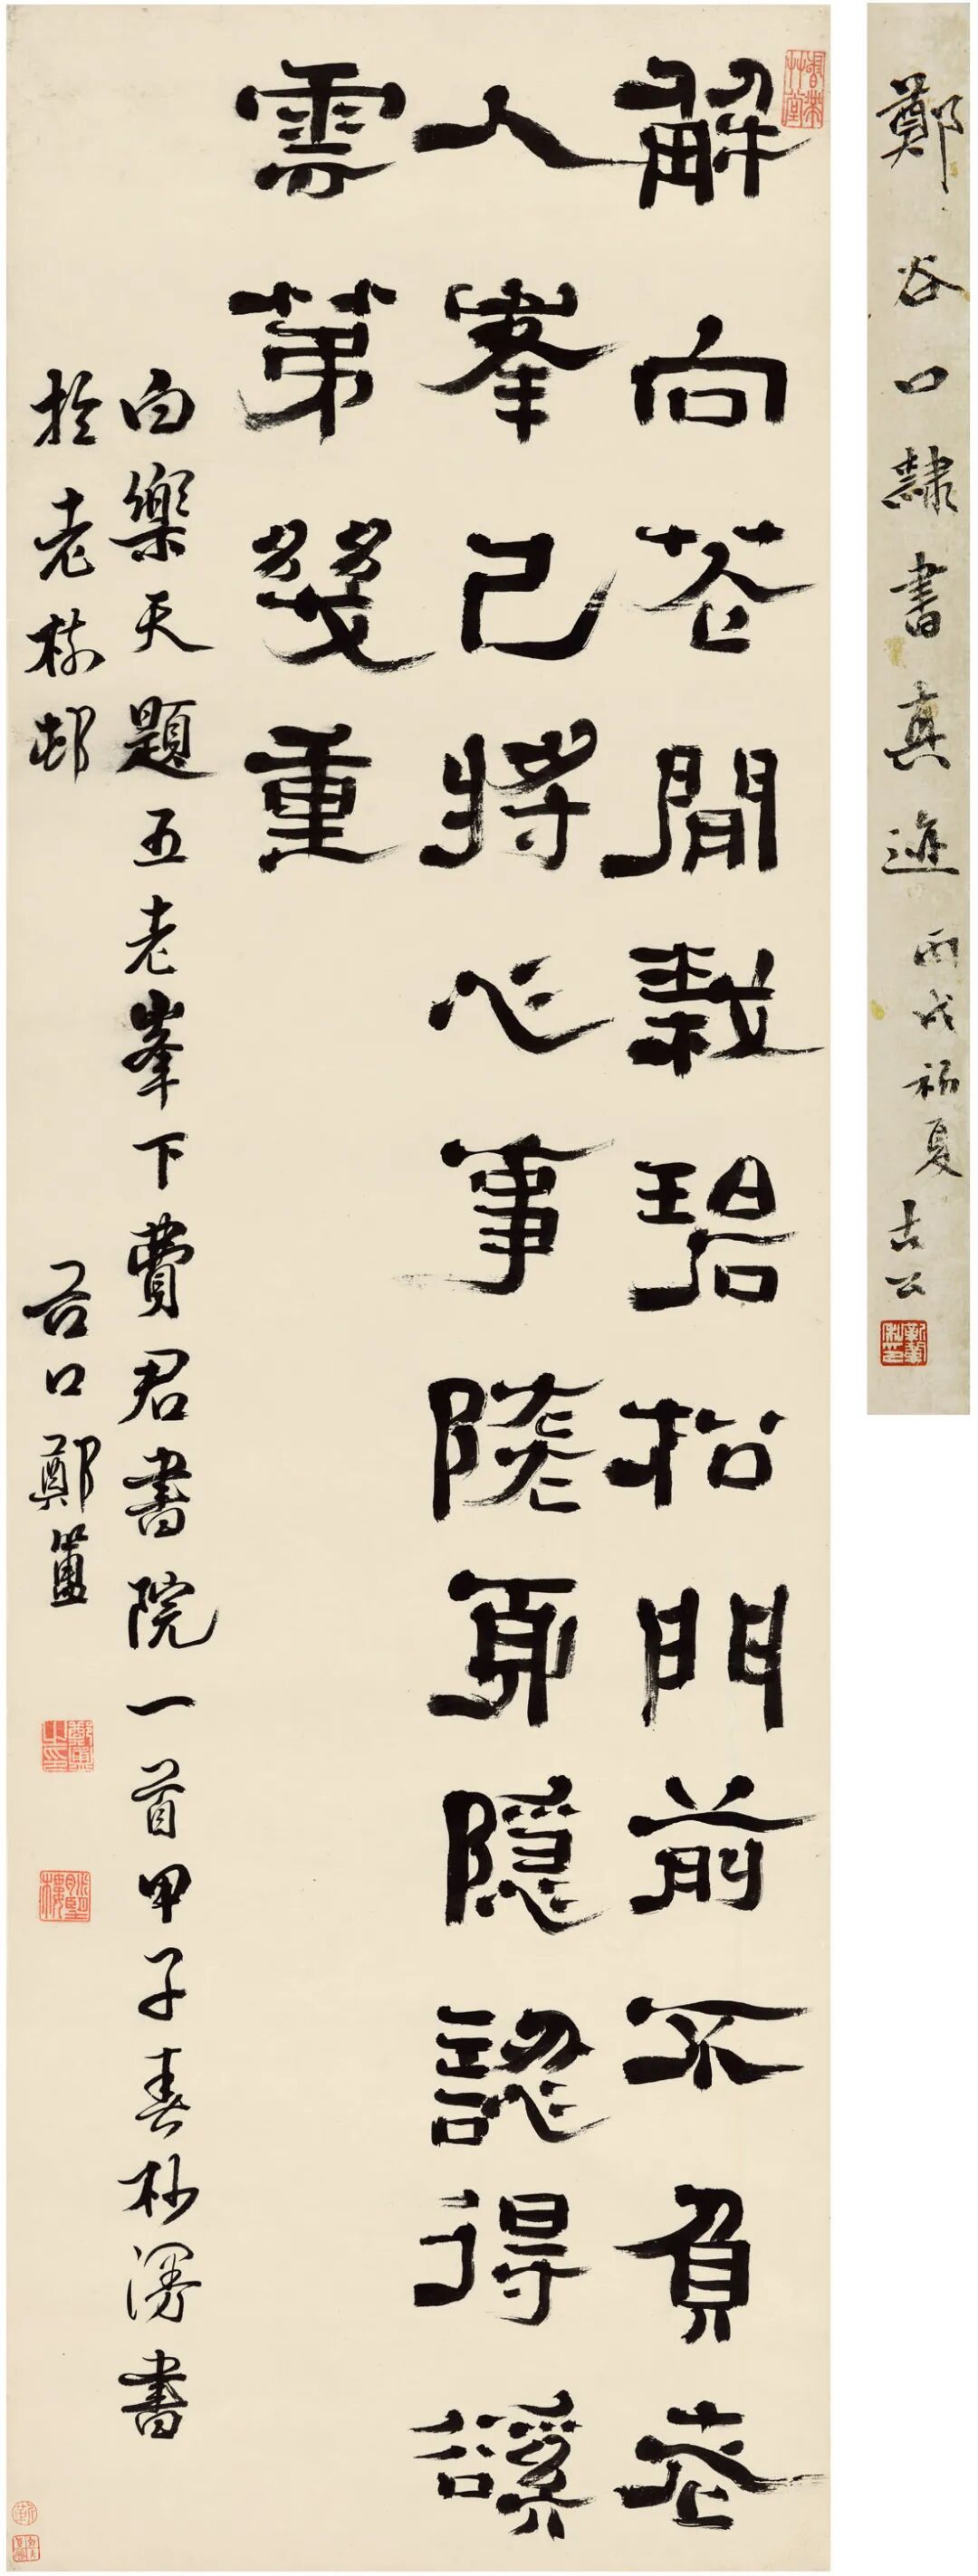 鄭谷口隸書真迹 丙戌初夏
解向花間栽碧松門前不負老
人峯已將心事隨身隱認得谿
雲苐幾重
白樂天題五老峯下費君書院一首甲子春杪漫書
於老邨 谷口鄭簠
鄭簠之印